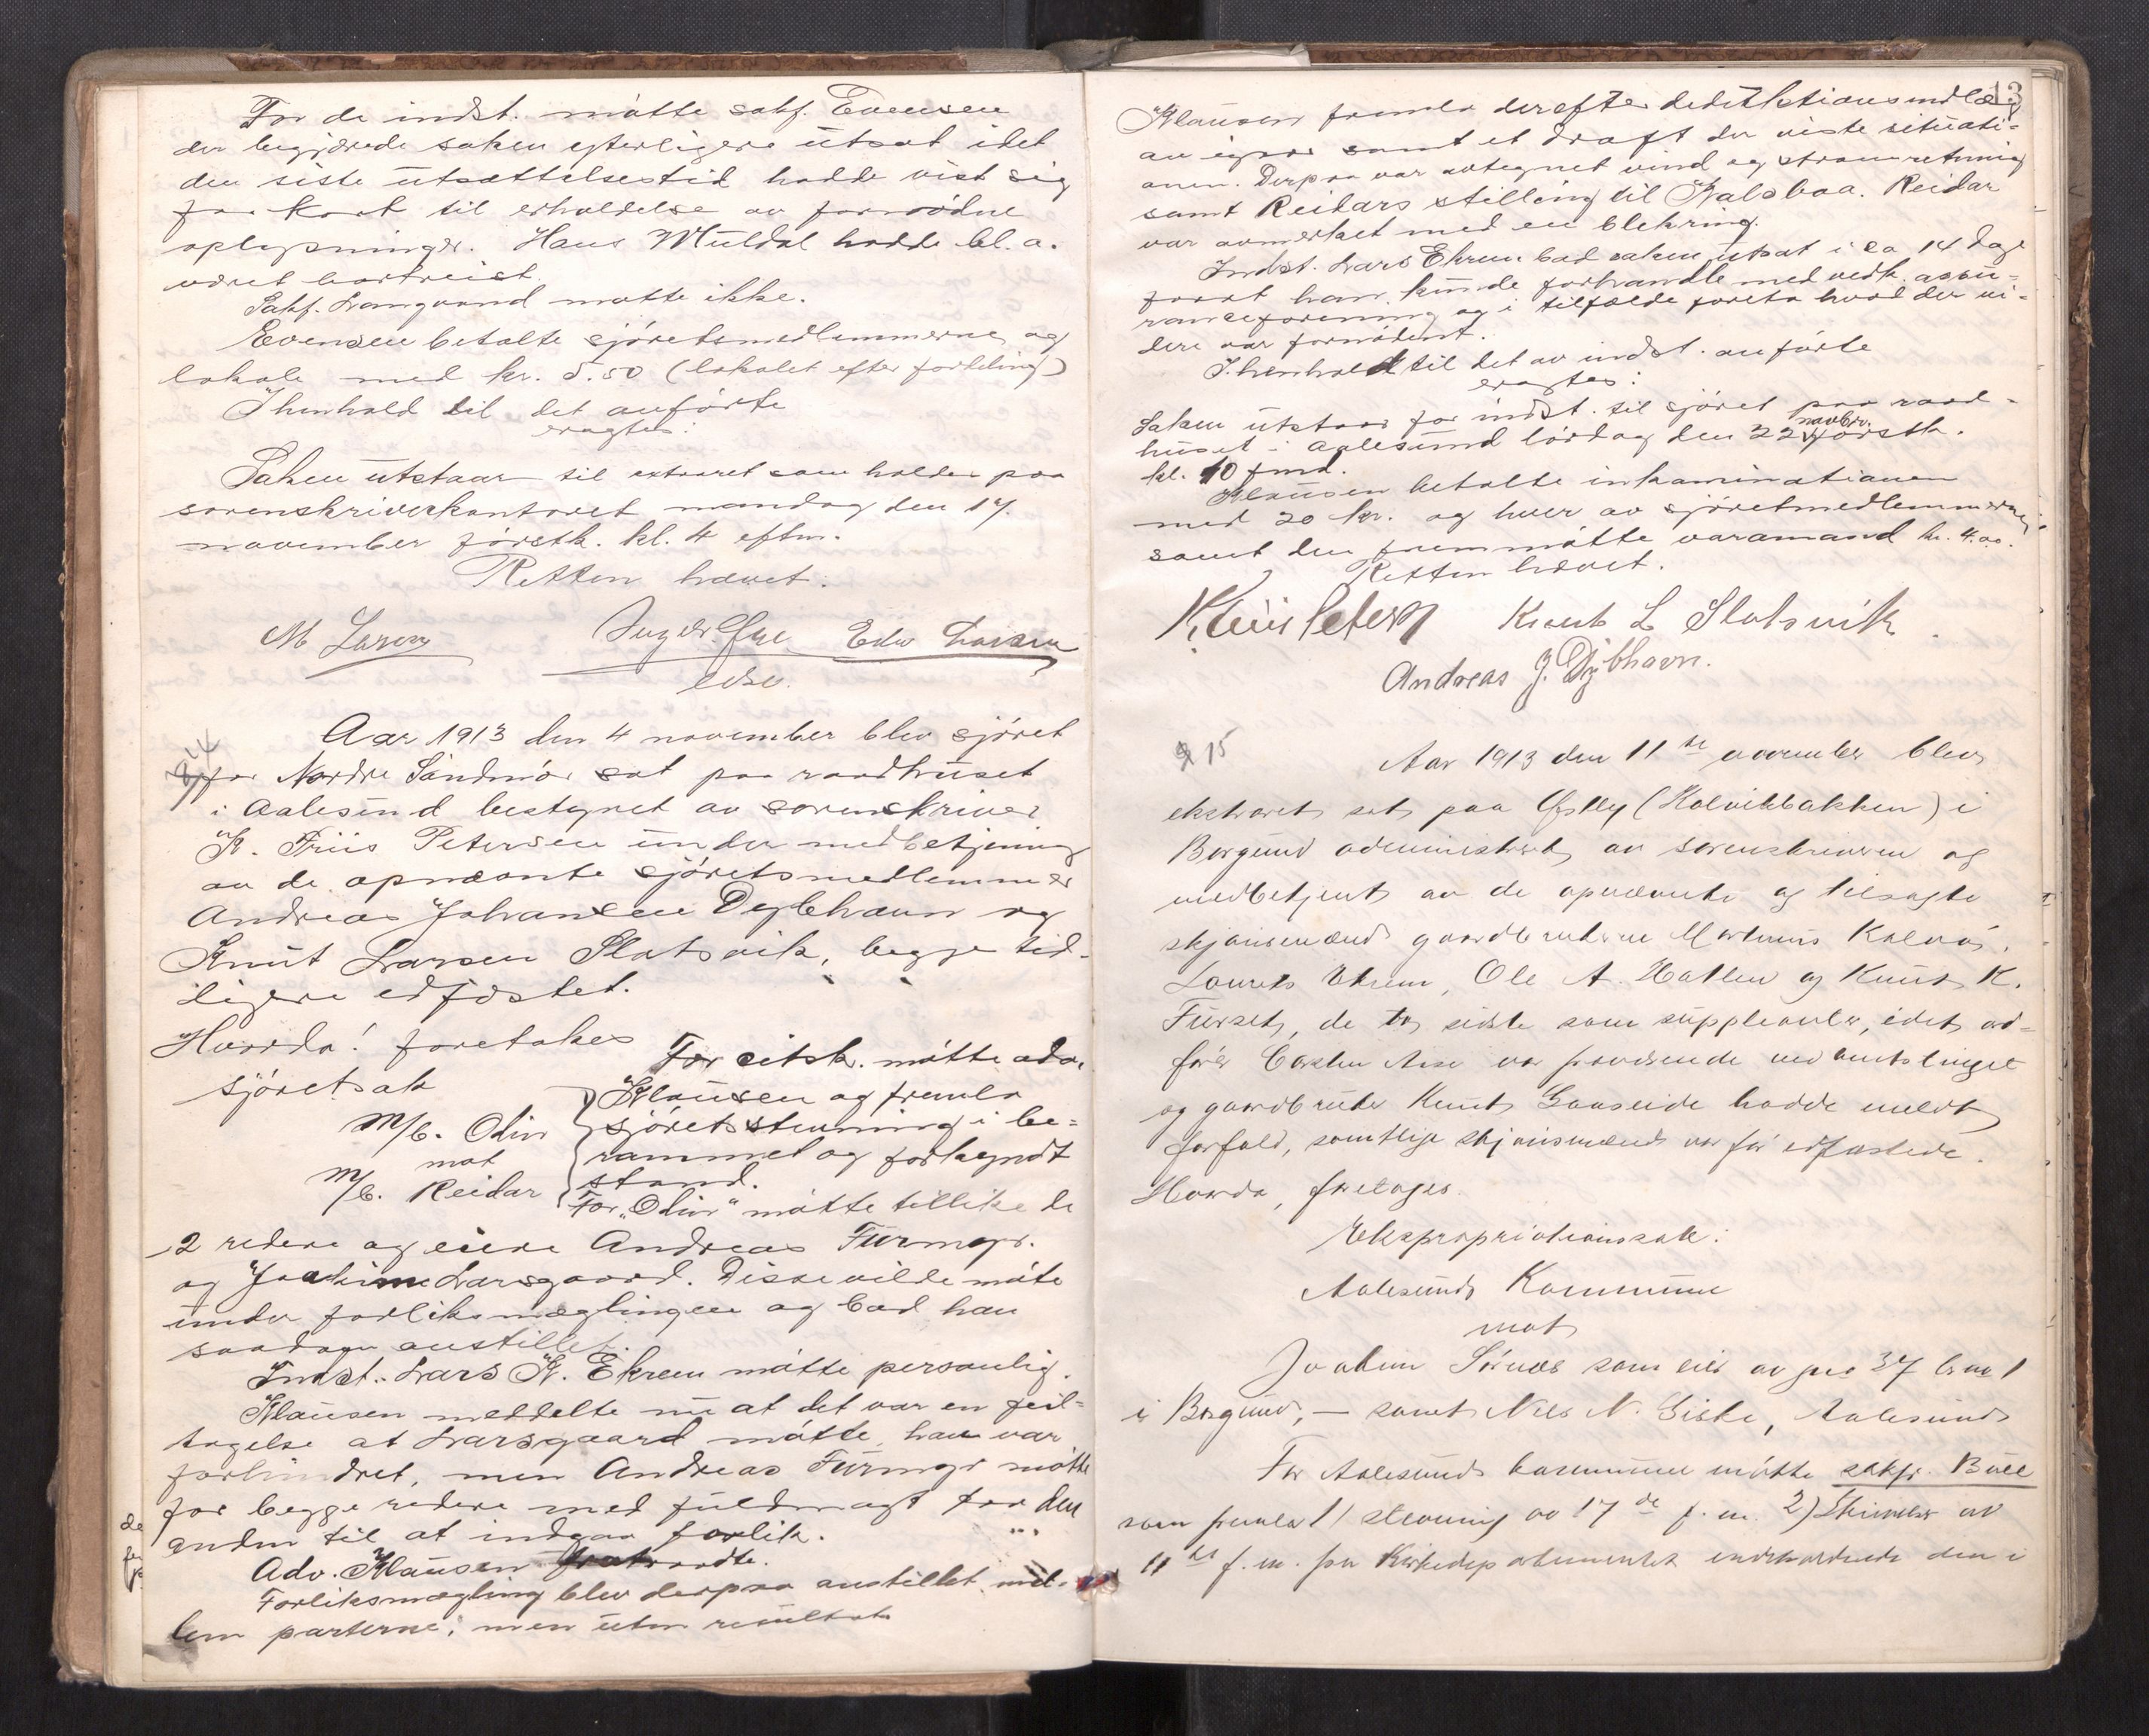 For de indst. møtte sakf. Evensen
der begjærede saken yterligere utsat idet
den siste utsættelsestid hadde vist sig
for kort til erholdelse av fornødne
oplysninger. Hans Muldal hadde bl. a.
været bortreist.
Sakf. Langvand møtte ikke.
Evensen betalte sjøretsmedlemmerne og
lokale med kr. 5.50 (lokalet efter fordeling)
I henhold til det anførte
eragtes:
Saken utstaar til extraret som holdes paa
sorenskriverkontoret mandag den 17.
november førstk. kl. 4 eftm.
Retten hævet.
M Larsen Edw Larsen
Aar 1913 den 4 november blev sjøret
for Nordre Søndmør sat paa raadhuset
i Aalesund bestyret av sorenskriver
K. Friis Petersen under medbetjening
av de opnævnte sjøretsmedlemmer
Andreas Johansen Dybhavn og
Knut Larsen Slotsvik, begge tid-
ligere edfæstet.
Hvorda! foretokes
sjøretsak
M/b. Olin
mot
M/b. Reidar
For citsk. møtte adv.
Klausen og fremla
sjøretsstevning i be-
rammet og forkyndt
stand.
For "Olin" møtte tillike de
2 redere og eiere Andreas Furmyr.
og Joachim Larsgaard. Disse vilde møte
under forliksmæglingen og bad han
saadan anstillet.
Indst. Lars K. Ekrem møtte personlig.
Klausen meddelte nu at det var en feil-
tagelse at Larsgaard møtte, han var
forhindret, men Andreas Furmyr møtte
for begge redere med fuldmagt for den
anden til at indgaa forlik.
Adv. Klausen fratraadte.
Forliksmægling blev derpaa anstillet mel-
lem parterne, men uten resultat
13
Klausen fremla derefter deduktionsindlæg
av igaar samt et draft der viste situati-
onen. Derpaa var avtegnet vind og strømretning
samt Reidars stilling til Kalsboa. Reidar
var avmerket med en blekring.
Indst. Lars Ekrem bad saken utsat i ca 14 dage
forat han kunde forhandle med vedk. assu-
ranceforening og i tilfælde foreta hvad der vi-
dere var fornødent.
I henhold til det av indst. anførte
eragtes:
Saken utstaar for indst. til sjøret paa raad-
huset i Aalesund lørdag den 22 novbr. førstk.
kl. 10 fmd.
Klausen betalte inkaminationen
med 20 kr. og hver av sjøretmedlemmerne
samt den fremmøtte varamand kr. 4.00.
Retten hævet.
K Friis Petersen Knut L Slotsvik
Andreas J. Dybhavn.
15
Aar 1913 den 11te november blev
ekstraret sat paa Østly (Kolvikbakken) i
Borgund administrert av sorenskriveren og
medbetjent av de opnævnte og tilsagte
skjønsmænd gaardbrukerne Martinus Kalvø,
Laurits Ekrem, Ole A. Hatlen og Knut K.
Furset, de to sidste som suppleanter, idet ord-
fører Carsten Ase var fraværende ved amtstinget
og gaardbruker Knut Gaaseide hadde meldt
forfald, samtlige skjønsmænd var før edfæstede.
Hvorda, foretages.
Ekspropriationssak:
Aalesunds Kommune
mot
Joakim Sørnes som eier av gno 37 bno 1
i Borgund, – samt Nils N. Giske, Aalesund
For Aalesunds kommune møtte sakfr. Bull
som fremla 1) stevning av 17de f. m. 2) Skrivelse av
11te f. m. fra Kirkedepartementet indeholdende den i